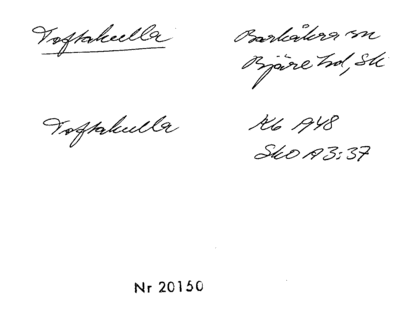 Toftakulla
Barkåkra sn
Bjäre hd, Sk
Toftakulla
Kb 1948
SkO A3:37
Nr 20150